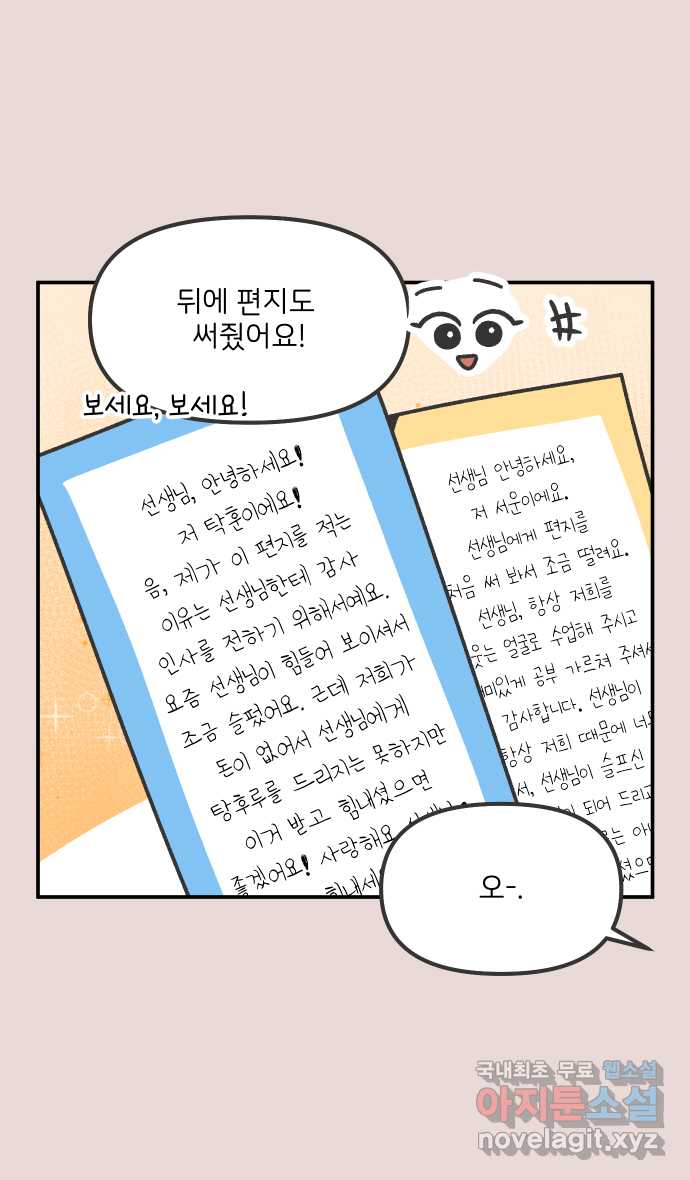 뒤에 편지도
써줬어요!
보세요, 보세요!
선생님, 안녕하세요!
저 탁훈이에요!
음, 제가 이 편지를 적는
이유는 선생님한테 감사
인사를 전하기 위해서예요.
요즘 선생님이 힘들어 보이셔서
조금 슬펐어요. 근데 저희가
돈이 없어서 선생님에게
탕후루를 드리지는 못하지만
이거 받고 힘내셨으면
좋겠어요! 사랑해요
힘내세
선생님 안녕하세요,
저 서운이에요.
선생님에게 편지를
처음 써 봐서 조금 떨려요.
선생님, 항상 저희를
웃는 얼굴로 수업해 주시고
재미있게 공부 가르쳐 주셔서
감사합니다. 선생님이
항상 저희 때문에 너무
서, 선생님이 슬프신
되어 드리고
는 아
셨으면
오-.
국내최초 무료 웹소설
아지툰소설
novelagit.xyz